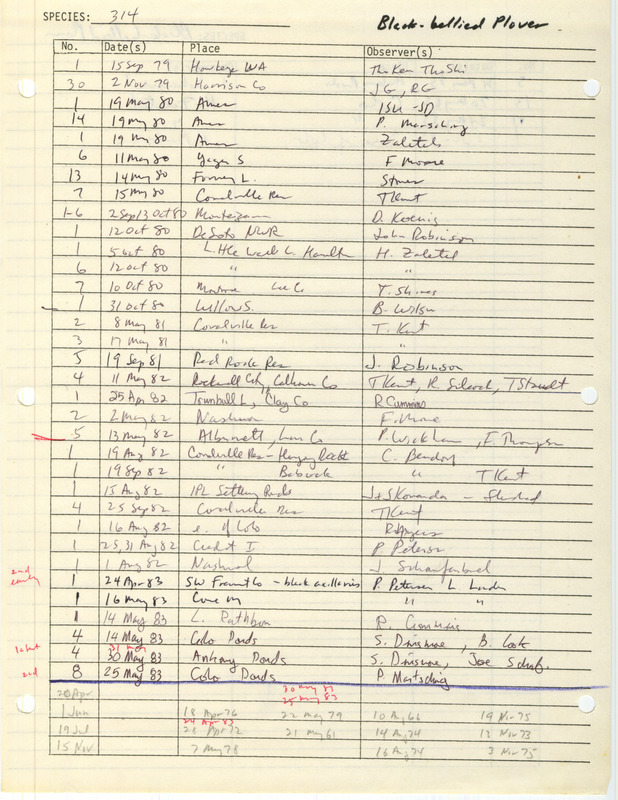 SPECIES: 314 Black-bellied Plover
No. Date(s) Place Observer(s)
1 15 Sep 79 Hawkeye WA
30 2 Nov 79 Harrison Co JG, RG
1 19 May 80 Ames ISU-JD
14 19 May 80 Ames P.
1 19 May 80 Ames Zaletel
6 11 May 80 S F Moore
13 14 May 80 L.
7 15 May 80 Coralville Res TKent
1-6 2 Sep/13 Oct 80 D. Koenig
1 12 Oct 80 DeSoto NWR John Robinson
1 5 Oct 80 Little Wall L. Hamilton H. Zaletel
6 12 Oct 80 " "
7 10 Oct 80 Co T.
1 31 Oct 80 Willow S. B. Wilson
2 8 May 81 Coralville Res T. Kent
3 17 May 81 " "
5 19 Sep 81 Red Rock Res J. Robinson
4 11 May 82 Rockwell City, Calhoun Co TKent, R. Silcock, T Staudt
1 25 Apr 82 Trumbull L, Clay Co R Cummins
2 2 May 82 F. Moore
5 13 May 82 Alburnett, Linn Co P. Wickham, F. Thompson
1 19 Aug 82 Coralville Res - C. Bendorf
1 19 Sep 82 " Babcock " TKent
1 15 Aug 82 IPL Settling Ponds
4 25 Sep 82 Coralville Res TKent
1 16 Aug 82 e. of Colo
1 25, 31 Aug 82 Credit I P. Petersen
1 1 Aug 82 J.
2nd early 1 24 Apr 83 SW Fremont Co - black axillaries P. Petersen L.
1 16 May 83 Cone M " "
1 14 May 83 L. Rathbun R. Cummins
4 14 May 83 Colo Ponds S. Dinsmore, B. Cook
31 May
latest 4 30 May 83 Ankeny Ponds S. Dinsmore, Joe
2nd 8 25 May 83 Colo Ponds P Martsching
20 Apr 30 May 83
25 May 83
1 Jun 18 Apr 76 22 May 79 10 Aug 66 19 Nov 75
24 Apr 83
19 Jul 25 Apr 72 21 May 61 14 Aug 74 12 Nov 73
15 Nov 7 May 78 16 Aug 74 3 Nov 75